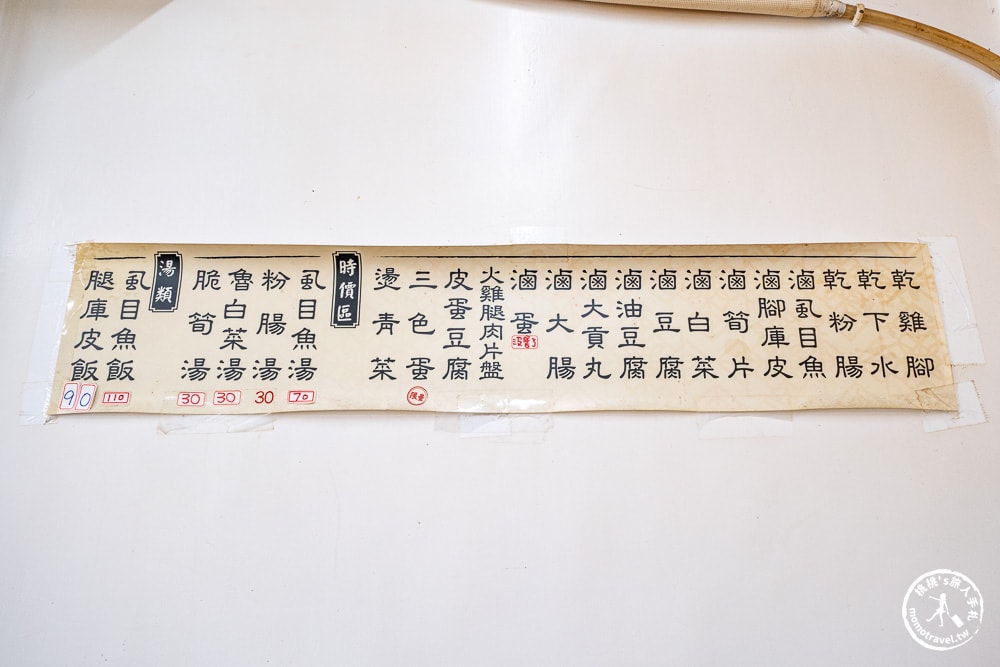 乾雞腳
乾下水
乾粉腸
滷虱目魚
滷腳庫皮
滷筍片
滷白菜
滷豆腐
滷油豆腐
滷大貢丸
滷大腸
滷蛋
沒賣了
火雞腿肉片盤
皮蛋豆腐
三色蛋
限量
燙青菜
時價區
虱目魚湯
70
粉腸湯
30
魯白菜湯
30
脆筍湯
30
湯類
虱目魚飯
110
腿庫皮飯
90
桃桃's旅人手札
momotravel.tw